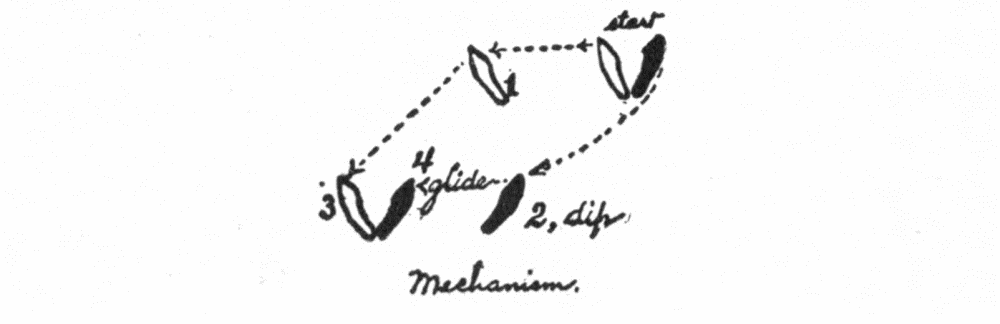 start
1
4
glide
3
2, dip
Mechanism.